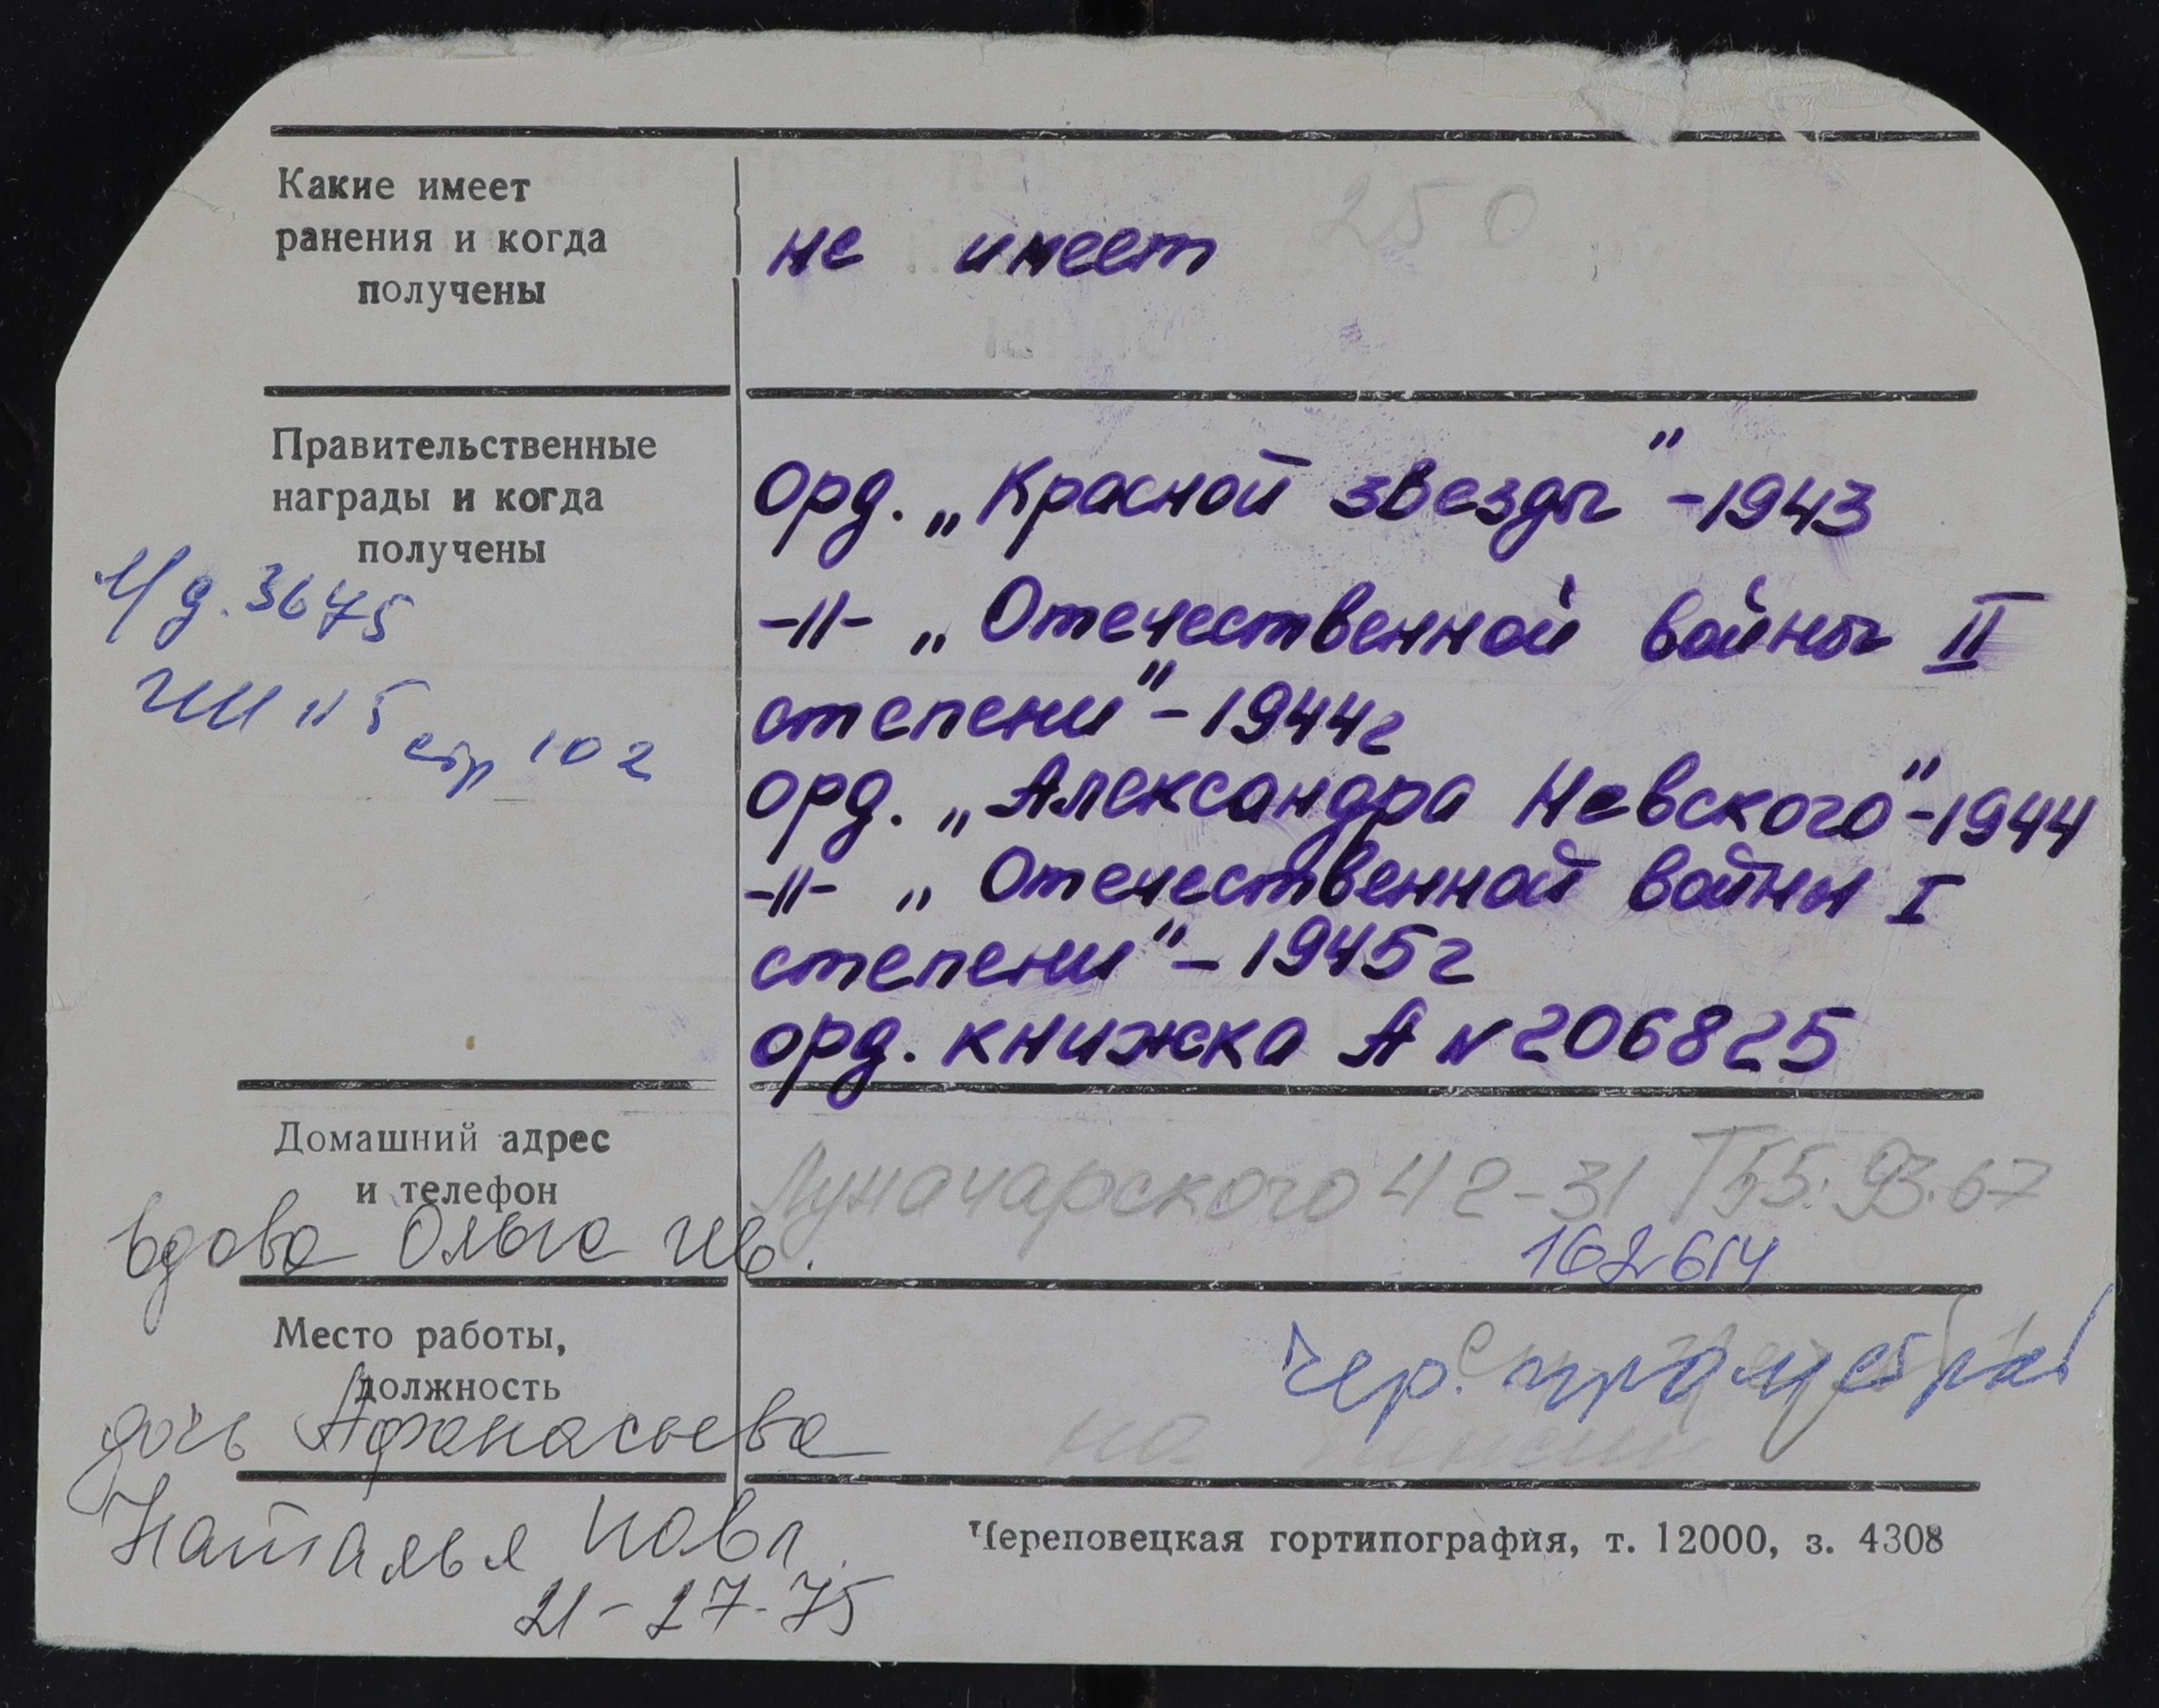 Какие имеет
ранения и когда
получены
250
не имеет
Правительственные
награды и когда
получены
орд. „Красной звезды" -1943
-//- „Отечественной войны II
степени" - 1944г
орд. „Александра Невского" -1944
-//- „Отечественной войны I
степени" - 1945г
орд. книжка А N 206825
д. 3675
стр 102
Домашний адрес
и телефон
Луначарского 42-31 Т 55.93.67
162614
вдова Ольга Ив.
Место работы,
должность
Чер.
на пенсии
дочь Афанасьева
Наталья Павл.
21-27-75
Череповецкая гортипография, т. 12000, з. 4308